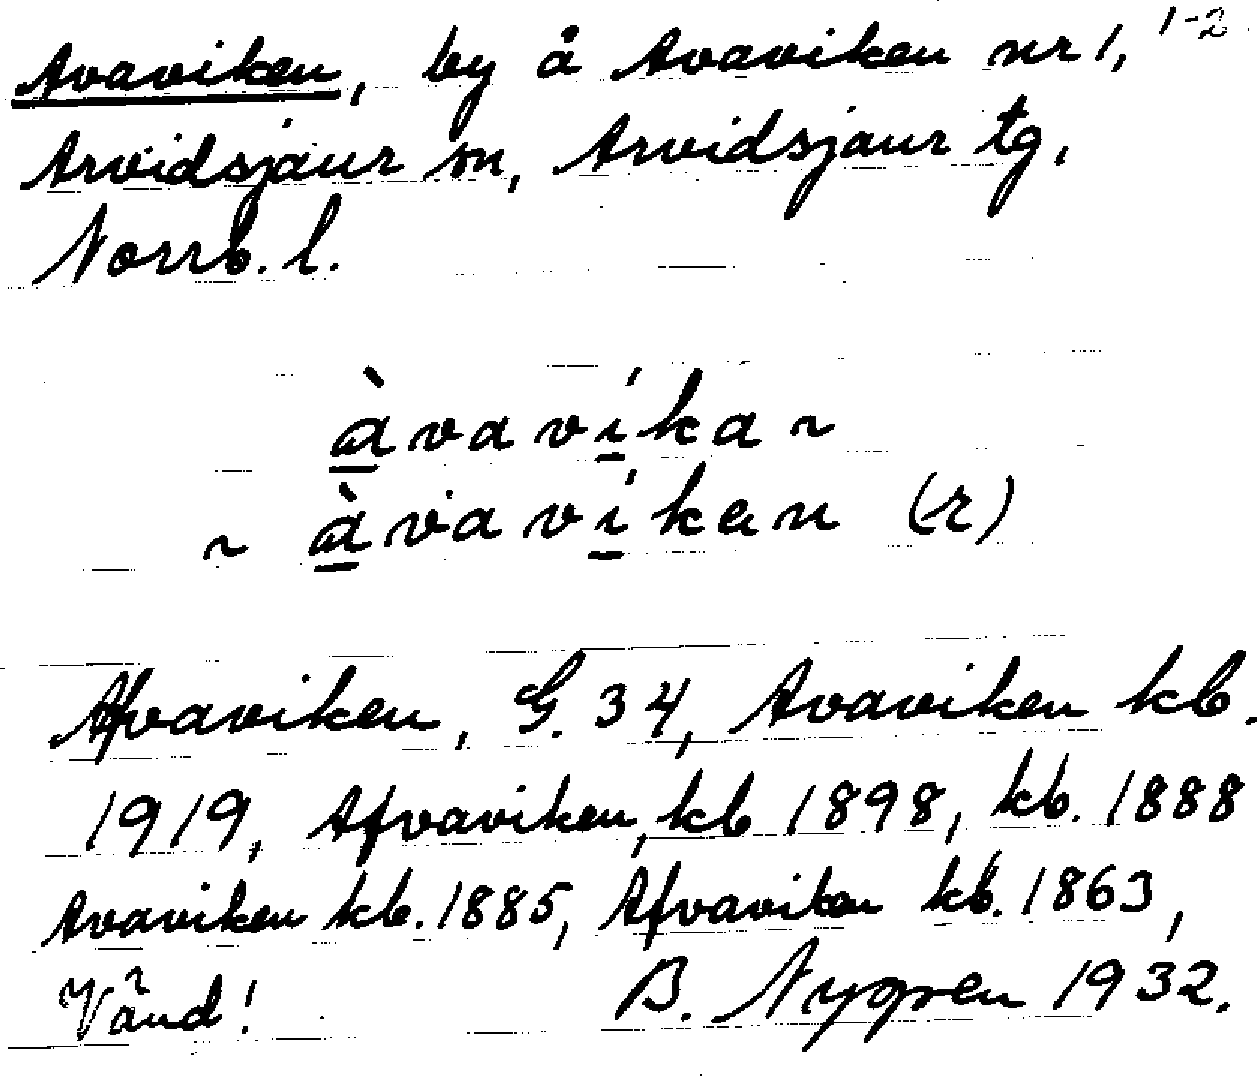 Avaviken, by å Avaviken nr 1, 1-2
Arvidsjaur sn, Arvidsjaur tg,
Norrb. l.
àvavíka ~
~ àvavíkan (-r)
Afvaviken, G. 34, Avaviken kb.
1919, Afvaviken, kb 1898, kb. 1888
Avaviken kb. 1885, Afvaviken kb. 1863,
Vänd! B. Nygren 1932.